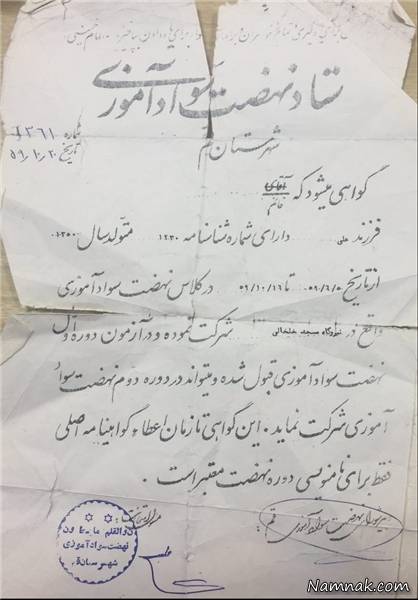 ستاد نهضت سوادآموزی
شهرستان قم
شماره ۱۳۶۱
تاریخ ۵۹/۱۰/۲۰
گواهی میشود که آقای
خانم
فرزند علی دارای شماره شناسنامه ۱۲۳۰ متولد سال ۱۳۵۰
از تاریخ ۵۹/۷/۵ تا ۵۹/۱۰/۱۶ در کلاس نهضت سوادآموزی
واقع در مسجد خلخالی شرکت نموده و در آزمون دوره اول
نهضت سوادآموزی قبول شده و میتواند در دوره دوم نهضت سواد
آموزی شرکت نماید. این گواهی تا زمان اعطاء گواهینامه اصلی
فقط برای نامنویسی دوره نهضت معتبر است.
نهضت سوادآموزی قم
ن والقلم و ما یسطرون
نهضت سوادآموزی
شهرستان قم
Namnak.com